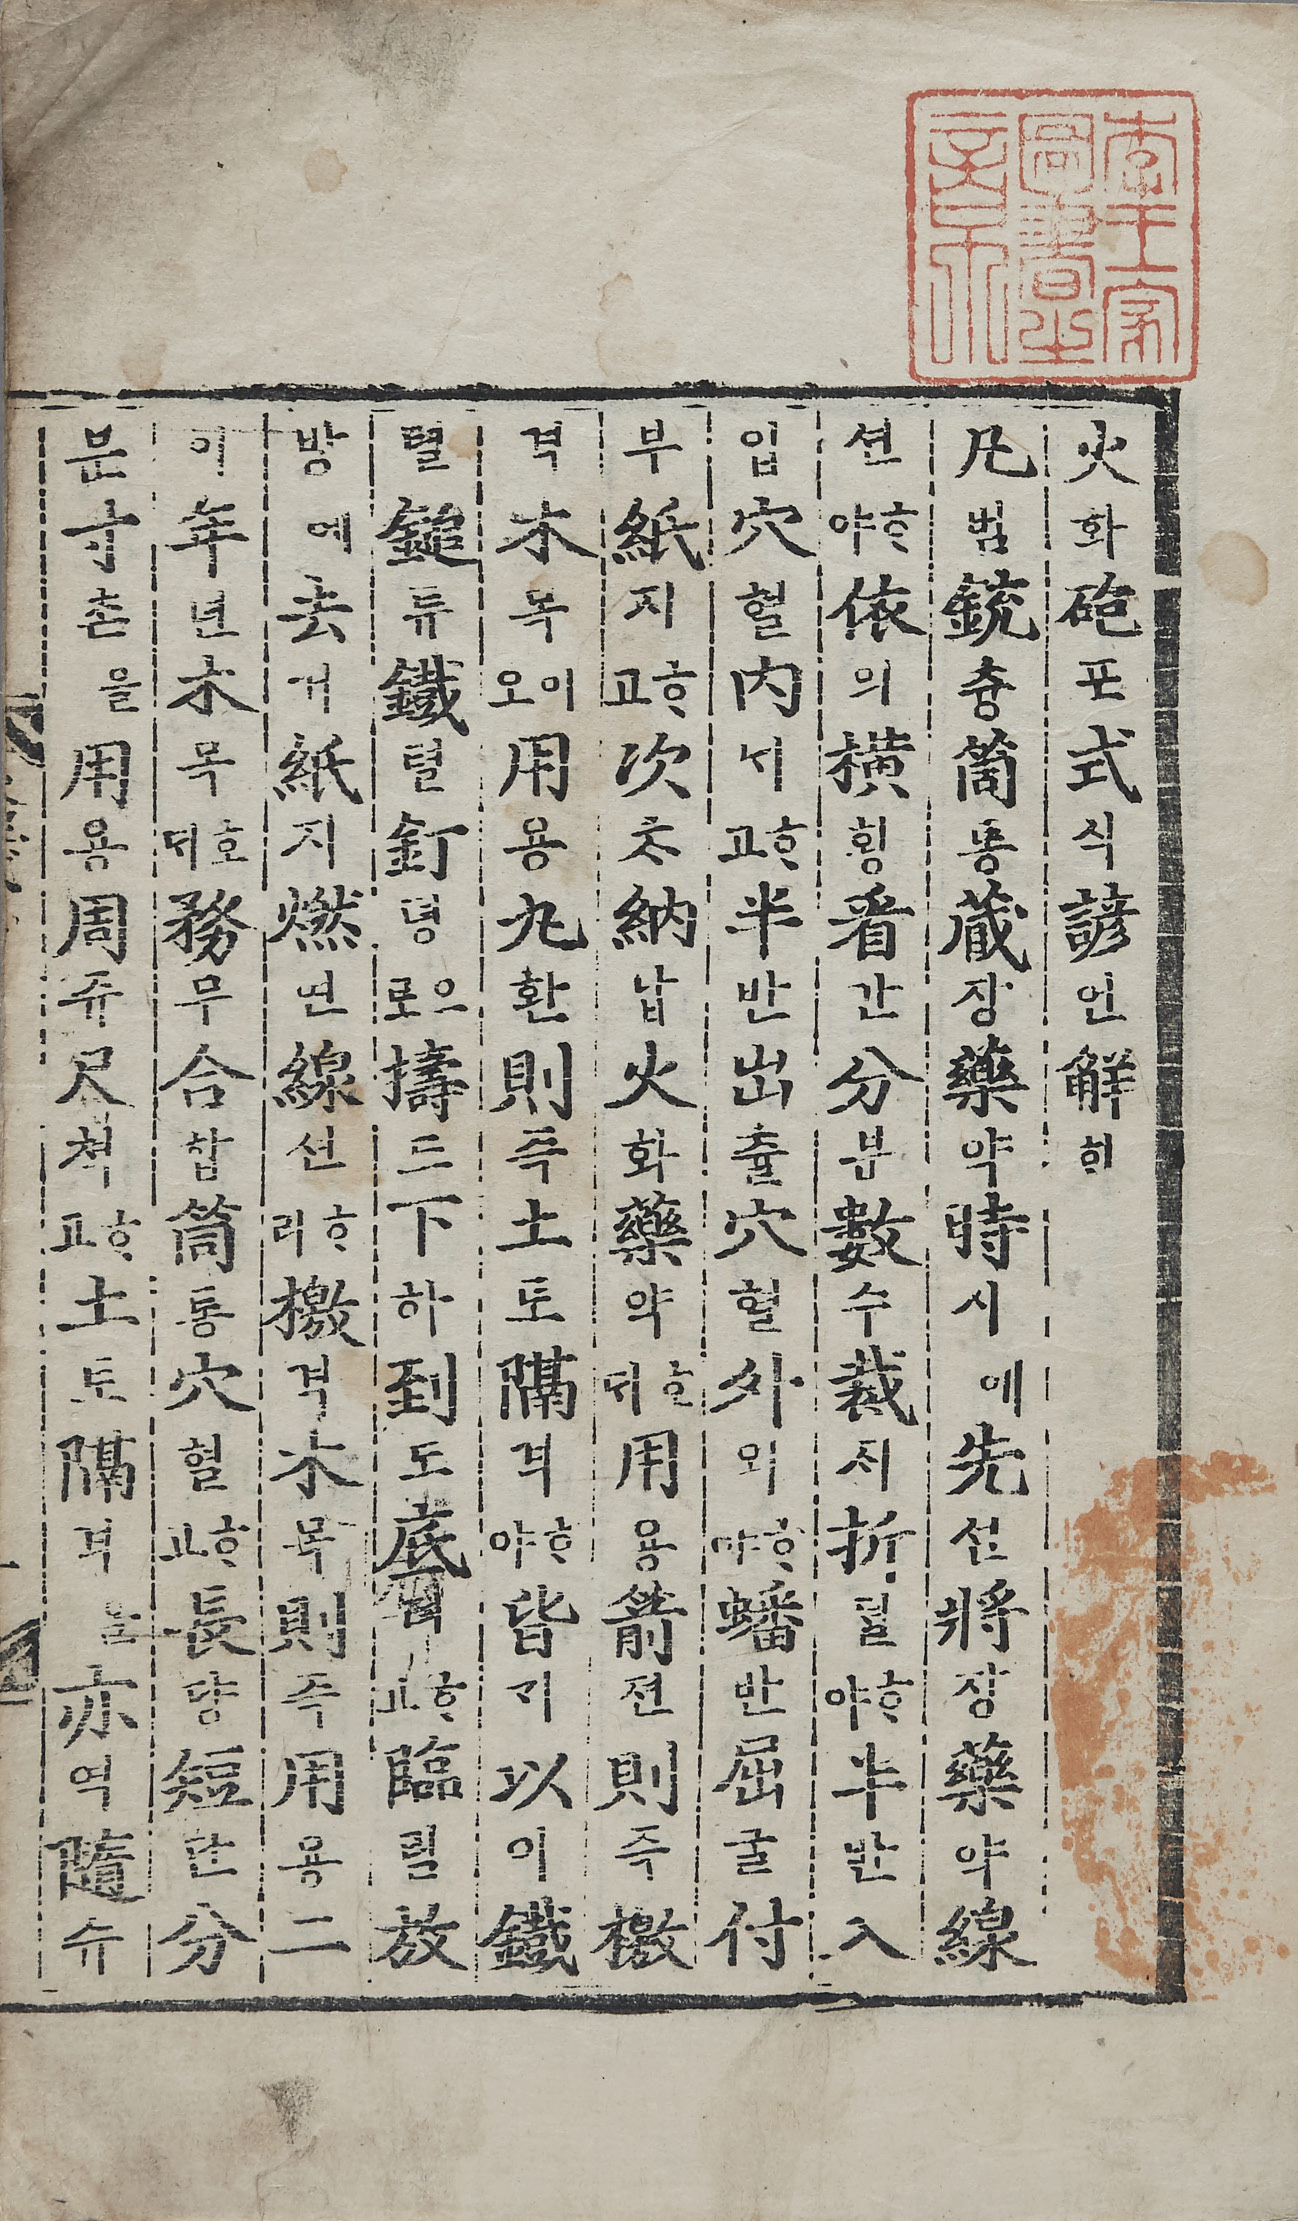 李王家圖書之章
火화砲포式식諺언解ᄒᆡ
凡범銃츙筒통藏장藥약時시예先션將쟝藥약線
션ᄒᆞ야依의橫횡看간分분數수裁ᄌᆡ折졀ᄒᆞ야半반入
입穴혈內ᄂᆡᄒᆞ고半반出츌穴혈外외ᄒᆞ야蟠반屈굴付
부紙지ᄒᆞ고次ᄎᆞ納납火화藥약호ᄃᆡ用용箭젼則즉檄
격木목이오用용丸환則즉土토隔격ᄒᆞ야皆ᄀᆡ以이鐵
텰鎚튜鐵텰釘뎡으로擣도下하到도底뎌ᄒᆞ고臨림放
방에去거紙지燃연線션ᄒᆞ라檄격木목則즉用용二
이年년木목호ᄃᆡ務무合합筒통穴혈ᄒᆞ고長댱短단分
분寸촌을用용周쥬尺쳑ᄒᆞ고土토隔격을亦역隨슈